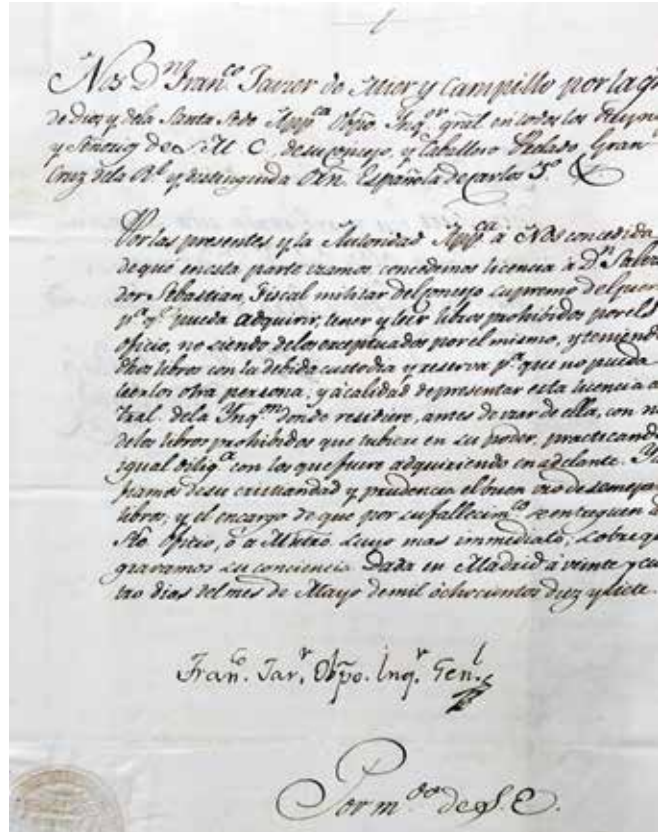 Nos Dn Franco. Javier de Mier y Campillo por la g
de Dios y de la Santa Sede Appca Obpo Inqor gral en todos los Reyno
y Señorios de S. M. C. de su consejo, y Caballero Prelado Gran
Cruz de la Rl. y distinguida Orn. Española de Carlos 3o &
Por las presentes y la Autoridad Appca á Nos concedida
de que en esta parte usamos, concedemos licencia á Dn Salva
dor Sebastian, Fiscal militar del Consejo Supremo de la Guer
pa. qe. pueda adquirir, tener y leer libros prohibidos por el S
oficio, no siendo de los exceptuados por el mismo, y teniend
dhos libros con la debida custodia y reserva pa. que no pueda
leerlos otra persona; y á calidad de presentar esta licencia a
tral. de la Inqon donde residiere, antes de usar de ella, con n
de los libros prohibidos que tubiere en su poder, practicando
igual obliga con los que fuere adquiriendo en adelante.
fiamos de su cristiandad y prudencia el buen uso de semejan
libros, y el encargo de que por su fallecimto se entreguen
Sto. Oficio, ó a Mntro. suyo mas immediato, sobre q
gravamos su conciencia. Dada en Madrid á veinte y cua
tro dias del mes de Mayo de mil óchocientos diez y siete.
Franco. Javr. Obpo. Inqr. Genl.
Por mdo de S. E.